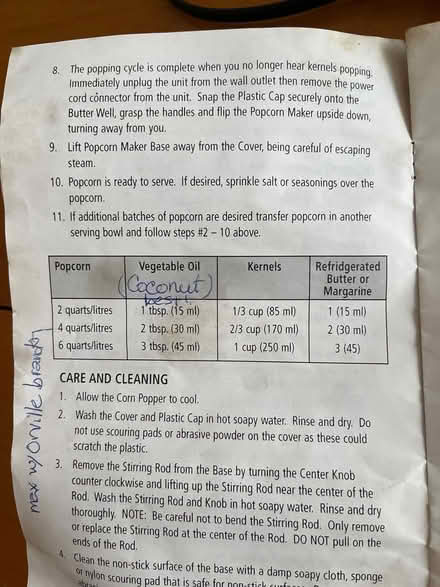 8. The popping cycle is complete when you no longer hear kernels popping.
Immediately unplug the unit from the wall outlet then remove the power
cord connector from the unit. Snap the Plastic Cap securely onto the
Butter Well, grasp the handles and flip the Popcorn Maker upside down,
turning away from you.
9. Lift Popcorn Maker Base away from the Cover, being careful of escaping
steam.
10. Popcorn is ready to serve. If desired, sprinkle salt or seasonings over the
popcorn.
11. If additional batches of popcorn are desired transfer popcorn in another
serving bowl and follow steps #2 – 10 above.
Popcorn Vegetable Oil Kernels Refridgerated
Butter or
Margarine
(Coconut)
best!
2 quarts/litres 1 tbsp. (15 ml) 1/3 cup (85 ml) 1 (15 ml)
4 quarts/litres 2 tbsp. (30 ml) 2/3 cup (170 ml) 2 (30 ml)
6 quarts/litres 3 tbsp. (45 ml) 1 cup (250 ml) 3 (45)
max w/Orville brand
CARE AND CLEANING
1. Allow the Corn Popper to cool.
2. Wash the Cover and Plastic Cap in hot soapy water. Rinse and dry. Do
not use scouring pads or abrasive powder on the cover as these could
scratch the plastic.
3. Remove the Stirring Rod from the Base by turning the Center Knob
counter clockwise and lifting up the Stirring Rod near the center of the
Rod. Wash the Stirring Rod and Knob in hot soapy water. Rinse and dry
thoroughly. NOTE: Be careful not to bend the Stirring Rod. Only remove
or replace the Stirring Rod at the center of the Rod. DO NOT pull on the
ends of the Rod.
4. Clean the non-stick surface of the base with a damp soapy cloth, sponge
or nylon scouring pad that is safe for non-stick